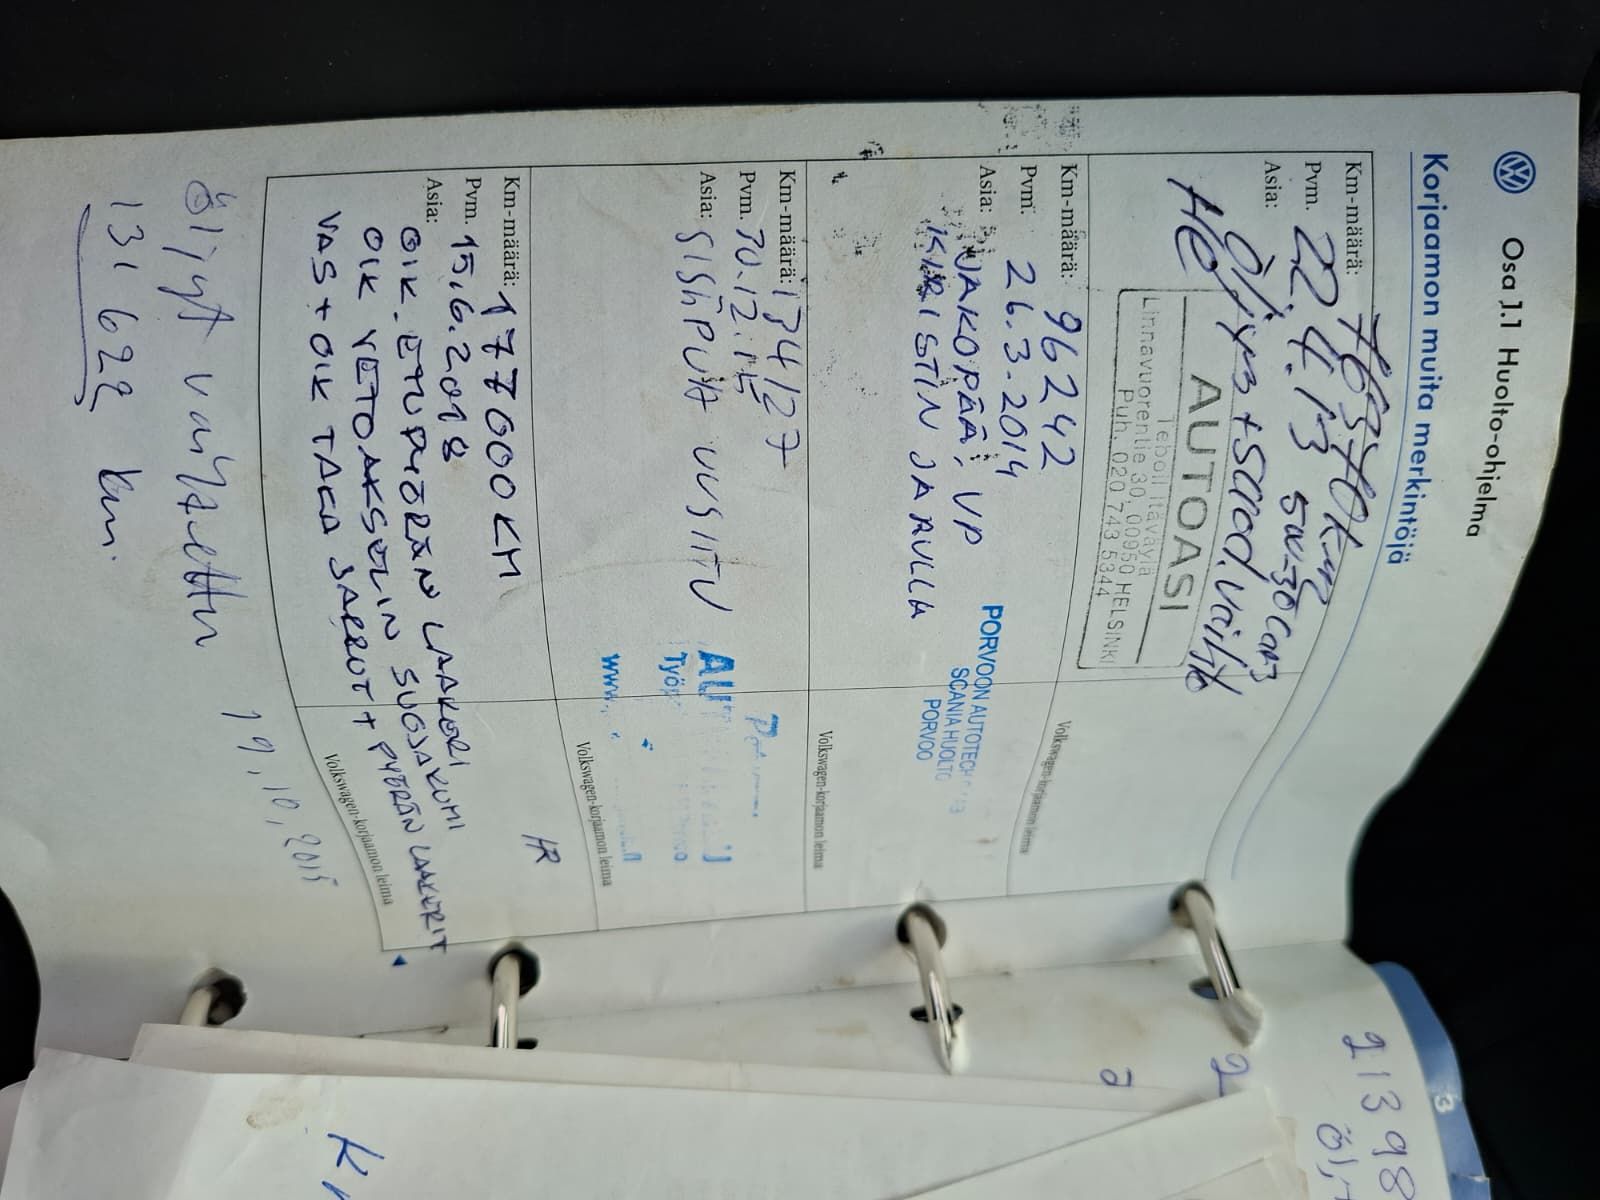 Osa 1.1 Huolto-ohjelma
Korjaamon muita merkintöjä
Km-määrä:
Pvm. 22.4.13 5W-30
Asia: Öljyn + suod.vaihto
AUTOASI
Teboil Itäväylä
Linnavuorentie 30, 00950 HELSINKI
Puh. 020 743 5344
Km-määrä: 96242
Pvm. 26.3.2014
Asia: JAKOPÄÄ, VP
KIRISTIN JA RULLA
Volkswagen-korjaamon leima
PORVOON
SCANIA HUOLTO
PORVOO
Km-määrä: 134127
Pvm. 10.12.15
Asia: SISÄPUH UUSITTU
Volkswagen-korjaamon leima
www.
Km-määrä: 177000KM
Pvm. 15.6.2018
Asia: OIK. ETUPYÖRÄN LAAKERI
OIK VETOAKSELIN SUOJAKUMI
VAS + OIK TAKA JARRUT + PYÖRÄN LAAKERIT
Volkswagen-korjaamon leima
Volkswagen-korjaamon leima
Öljyt vaihdettu 19.10.2015
131622 km.
21398
2
ö
3